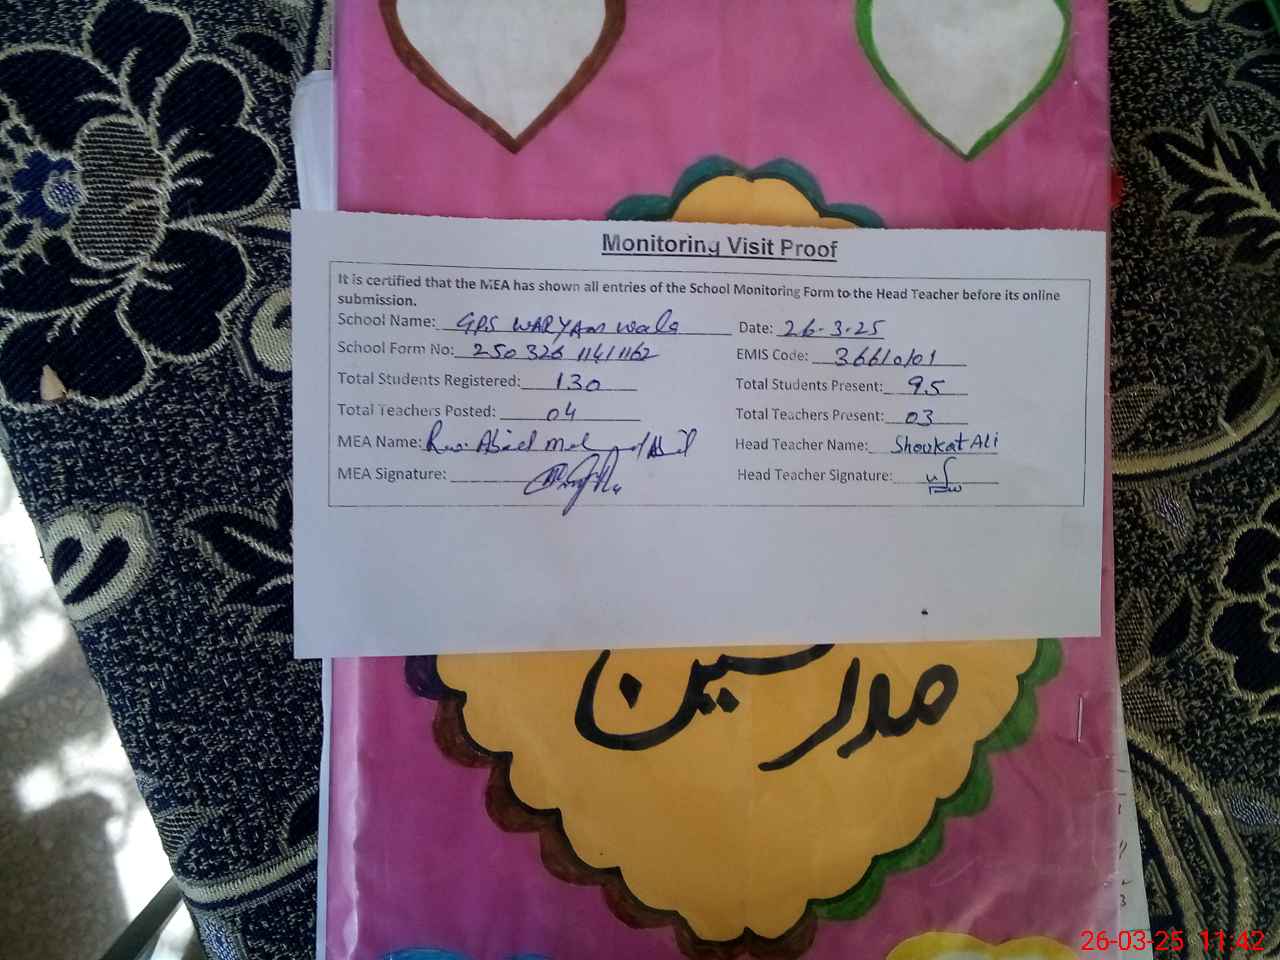 Monitoring Visit Proof
It is certified that the MEA has shown all entries of the School Monitoring Form to the Head Teacher before its online
submission.
School Name: GPS WARYAM Wala Date: 26-3-25
School Form No: 250 326 1141 1162 EMIS Code: 36610101
Total Students Registered: 130 Total Students Present: 95
Total Teachers Posted: 04 Total Teachers Present: 03
MEA Name: Head Teacher Name: Shoukat Ali
MEA Signature: Head Teacher Signature:
26-03-25 11:42